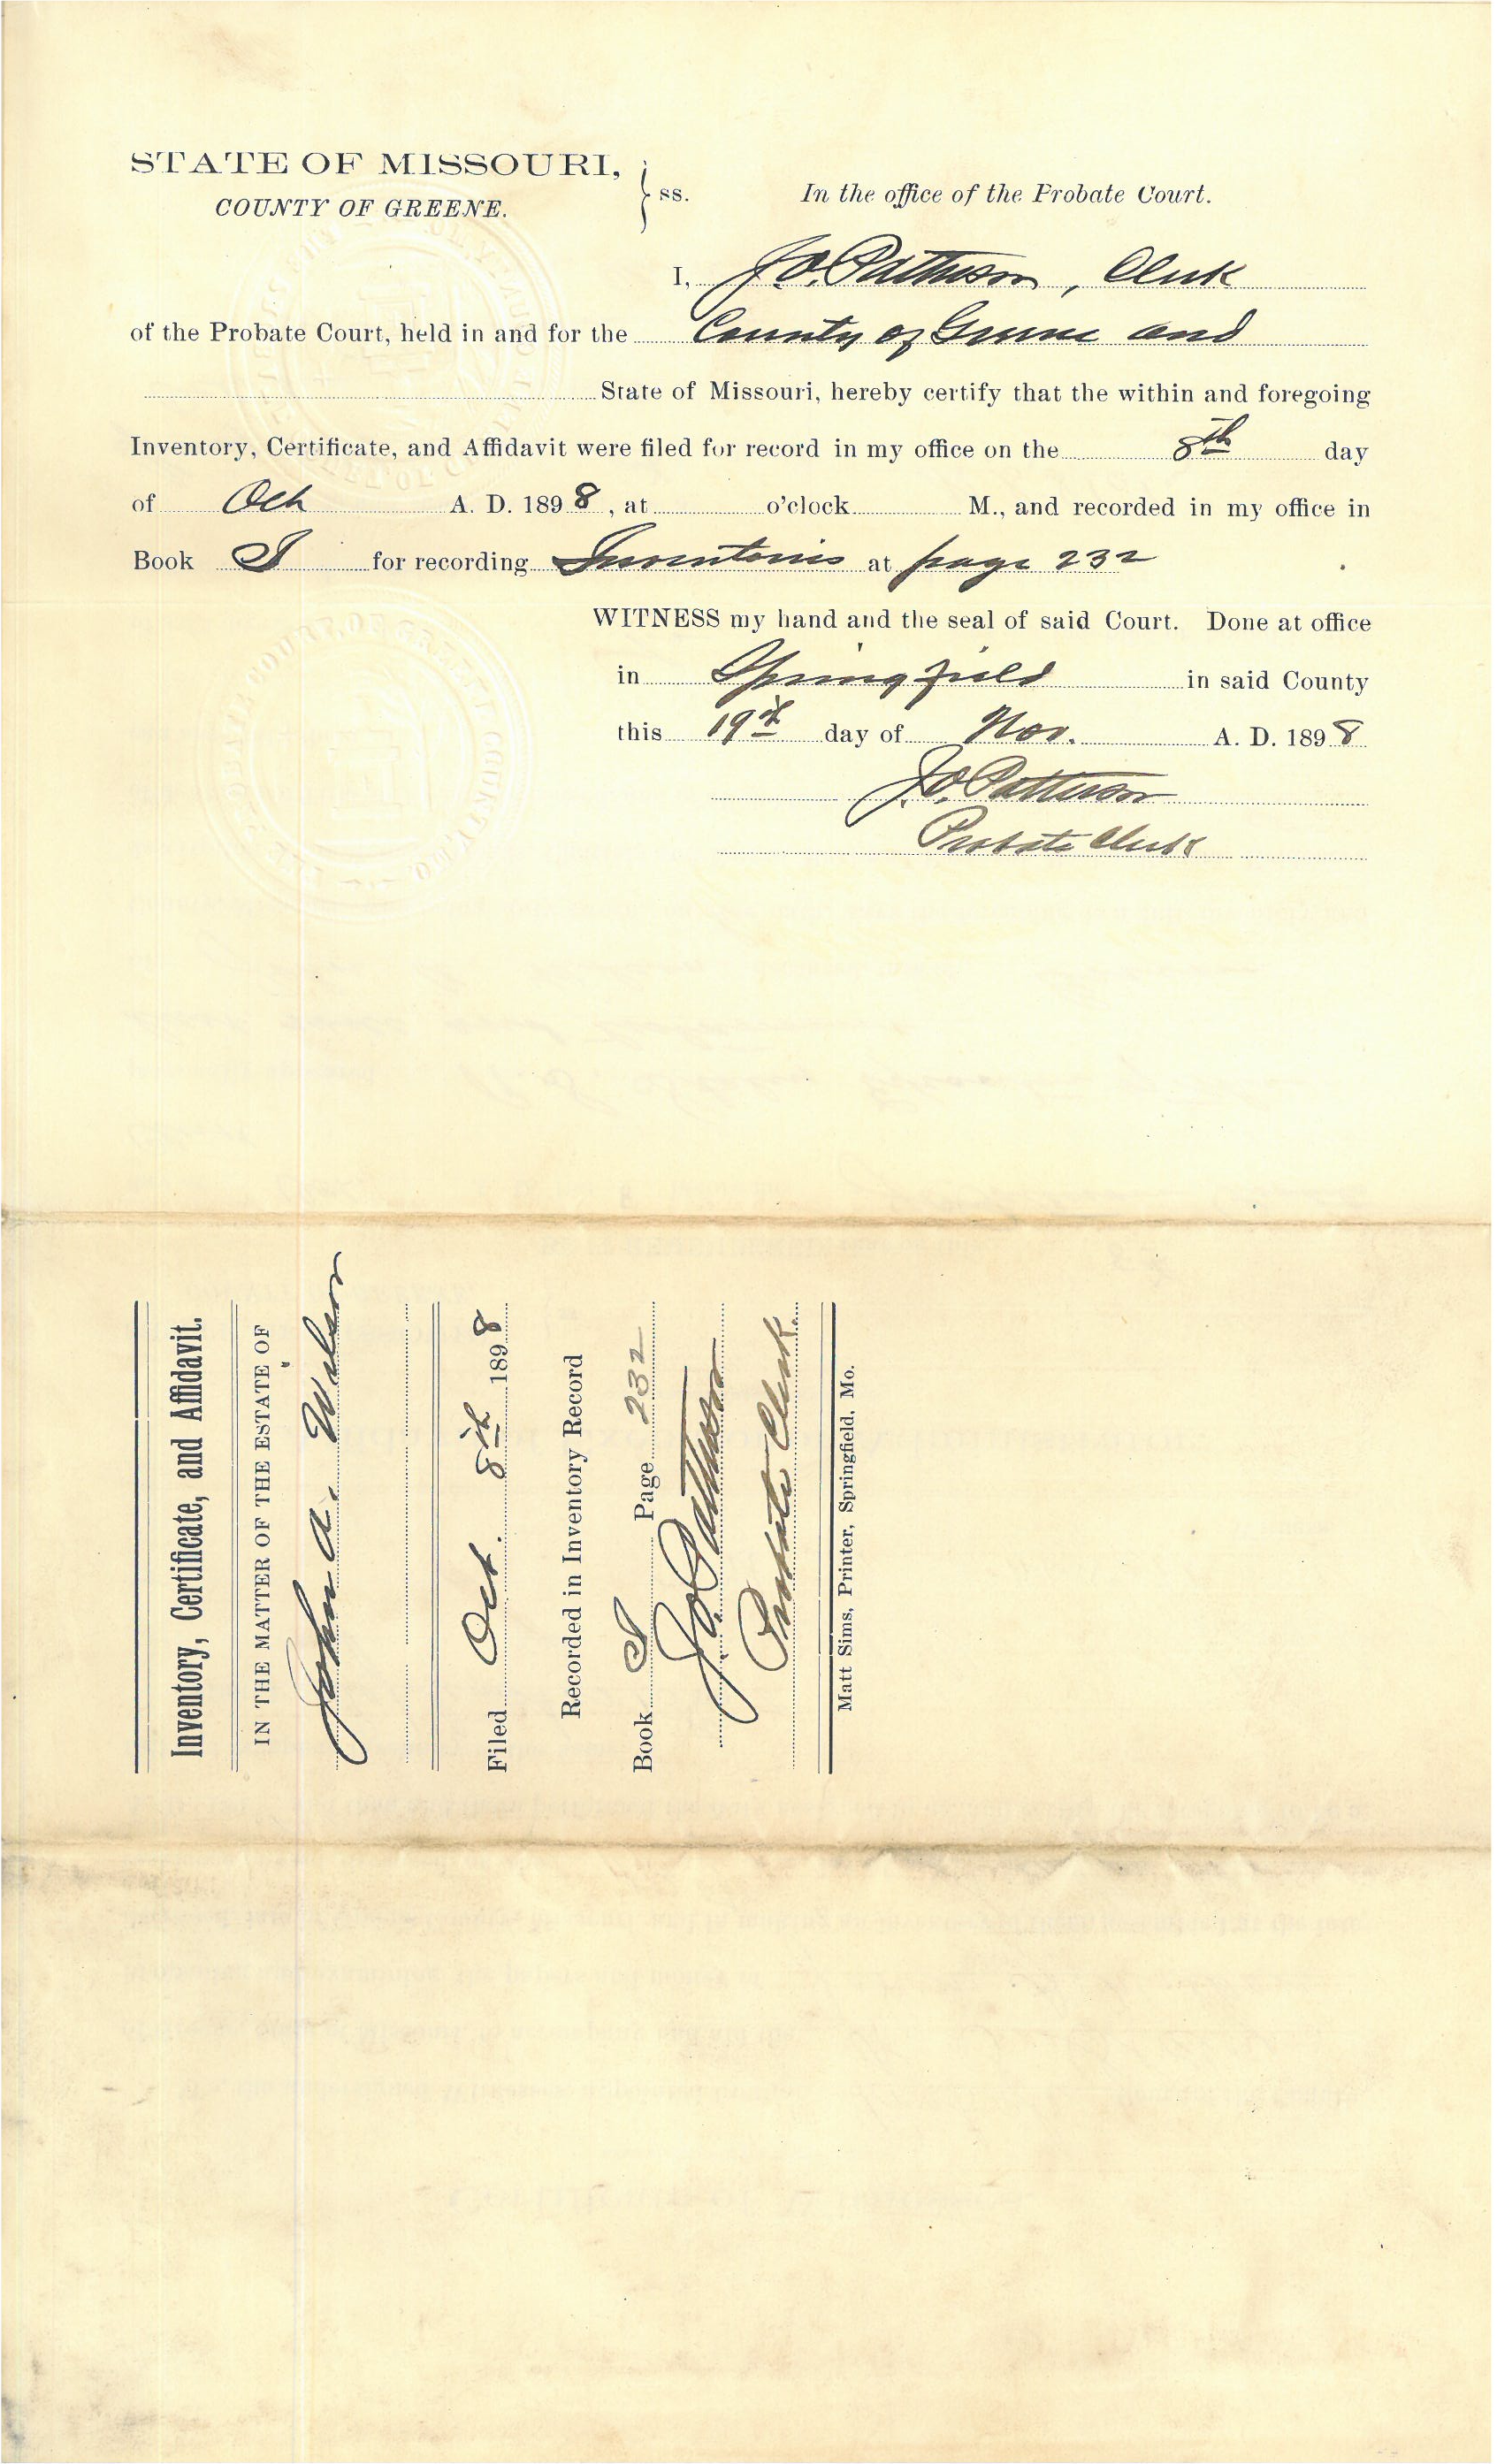 STATE OF MISSOURI, } ss. In the office of the Probate Court.
COUNTY OF GREENE.
I, J.O. Patterson, Clerk
of the Probate Court, held in and for the County of Greene and
State of Missouri, hereby certify that the within and foregoing
Inventory, Certificate, and Affidavit were filed for record in my office on the 8th day
of Oct A. D. 1898, at o'clock M., and recorded in my office in
Book I for recording Inventories at page 232
WITNESS my hand and the seal of said Court. Done at office
in Springfield in said County
this 19th day of Nov. A. D. 1898
J.O. Patterson
Probate Clerk
Inventory, Certificate, and Affidavit.
IN THE MATTER OF THE ESTATE OF
John A. Wilson
Filed Oct. 8th 1898
Recorded in Inventory Record
Book I Page 232
J.O. Patterson
Probate Clerk.
Matt Sims, Printer, Springfield, Mo.